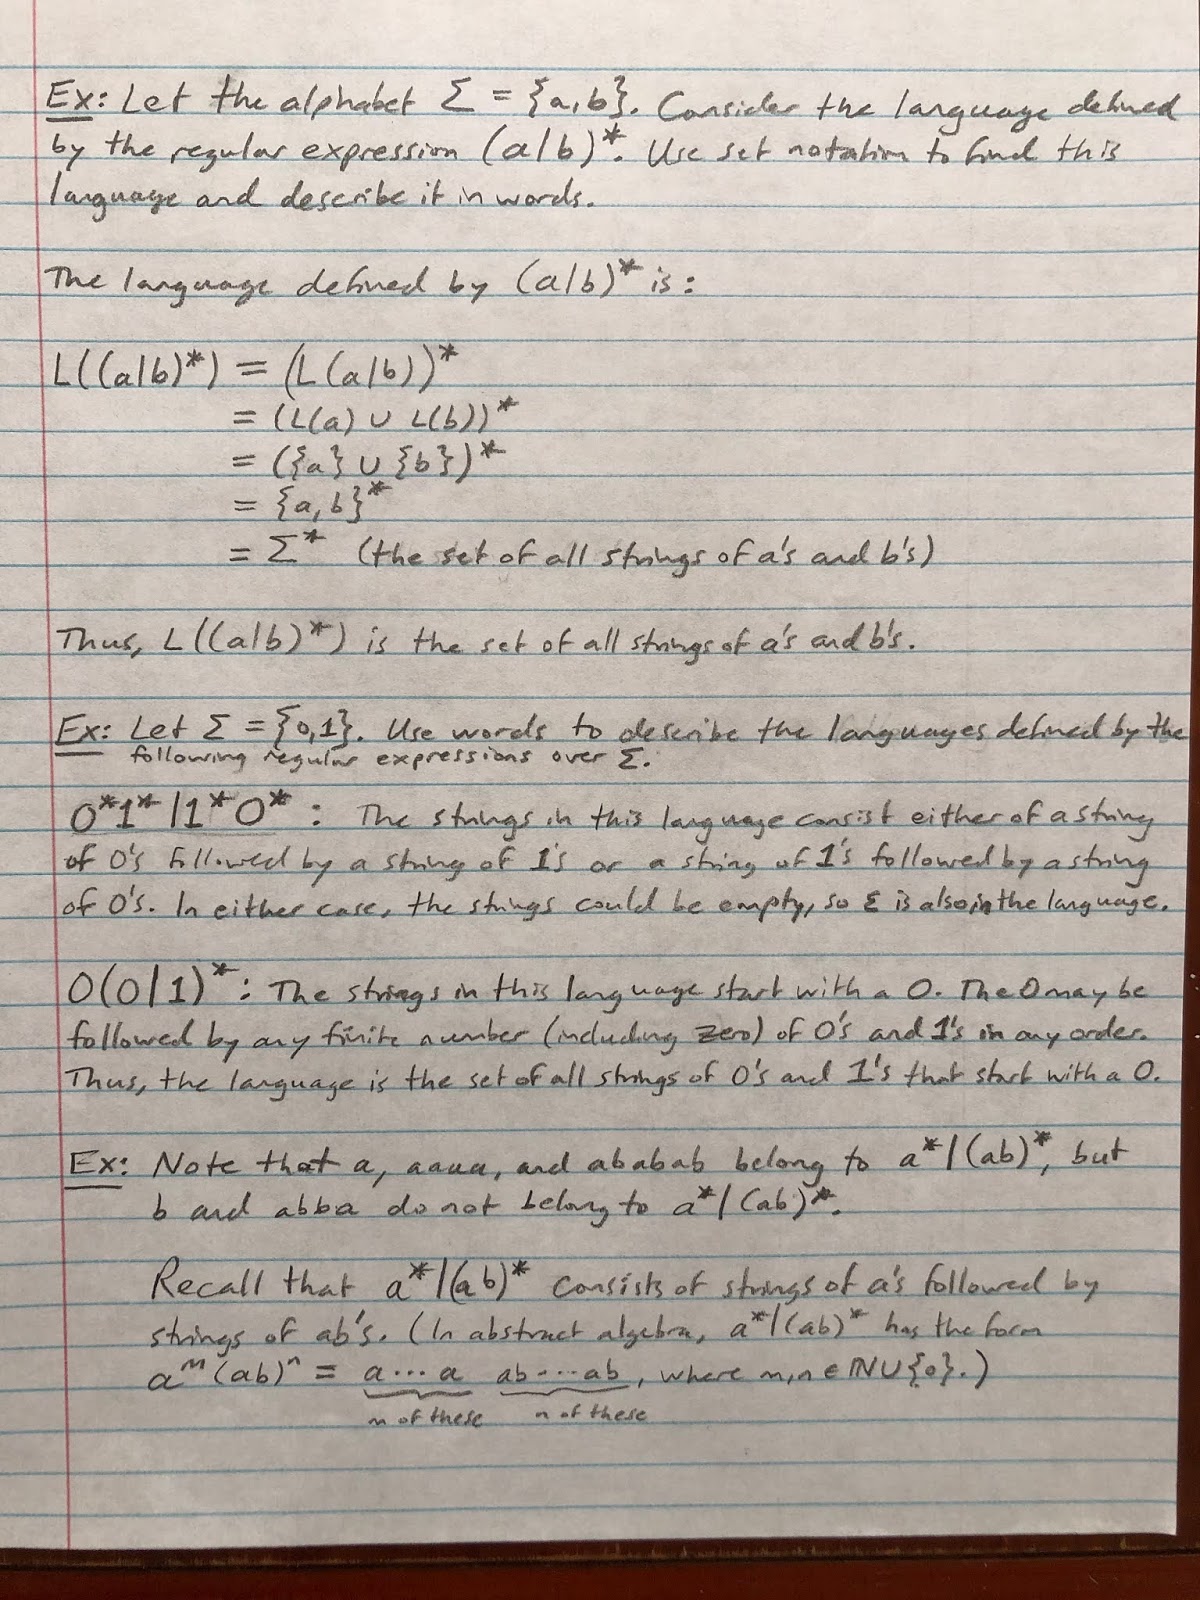 Ex: Let the alphabet Σ = {a,b}. Consider the language defined
by the regular expression (a|b)*. Use set notation to find this
language and describe it in words.
The language defined by (a|b)* is:
L((a|b)*) = (L(a|b))*
= (L(a) ∪ L(b))*
= ({a} ∪ {b})*
= {a,b}*
= Σ* (the set of all strings of a's and b's)
Thus, L((a|b)*) is the set of all strings of a's and b's.
Ex: Let Σ = {0,1}. Use words to describe the languages defined by the
following regular expressions over Σ.
0*1*|1*0* : The strings in this language consist either of a string
of 0's followed by a string of 1's or a string of 1's followed by a string
of 0's. In either case, the strings could be empty, so ε is also in the language.
0(0|1)*: The strings in this language start with a 0. The 0 may be
followed by any finite number (including zero) of 0's and 1's in any order.
Thus, the language is the set of all strings of 0's and 1's that start with a 0.
Ex: Note that a, aaaa, and ababab belong to a*|(ab)*, but
b and abba do not belong to a*|(ab)*.
Recall that a*|(ab)* consists of strings of a's followed by
strings of ab's. (In abstract algebra, a*|(ab)* has the form
aᵐ(ab)ⁿ = a···a ab···ab, where m,n ∈ ℕ∪{0}.)
m of these n of these